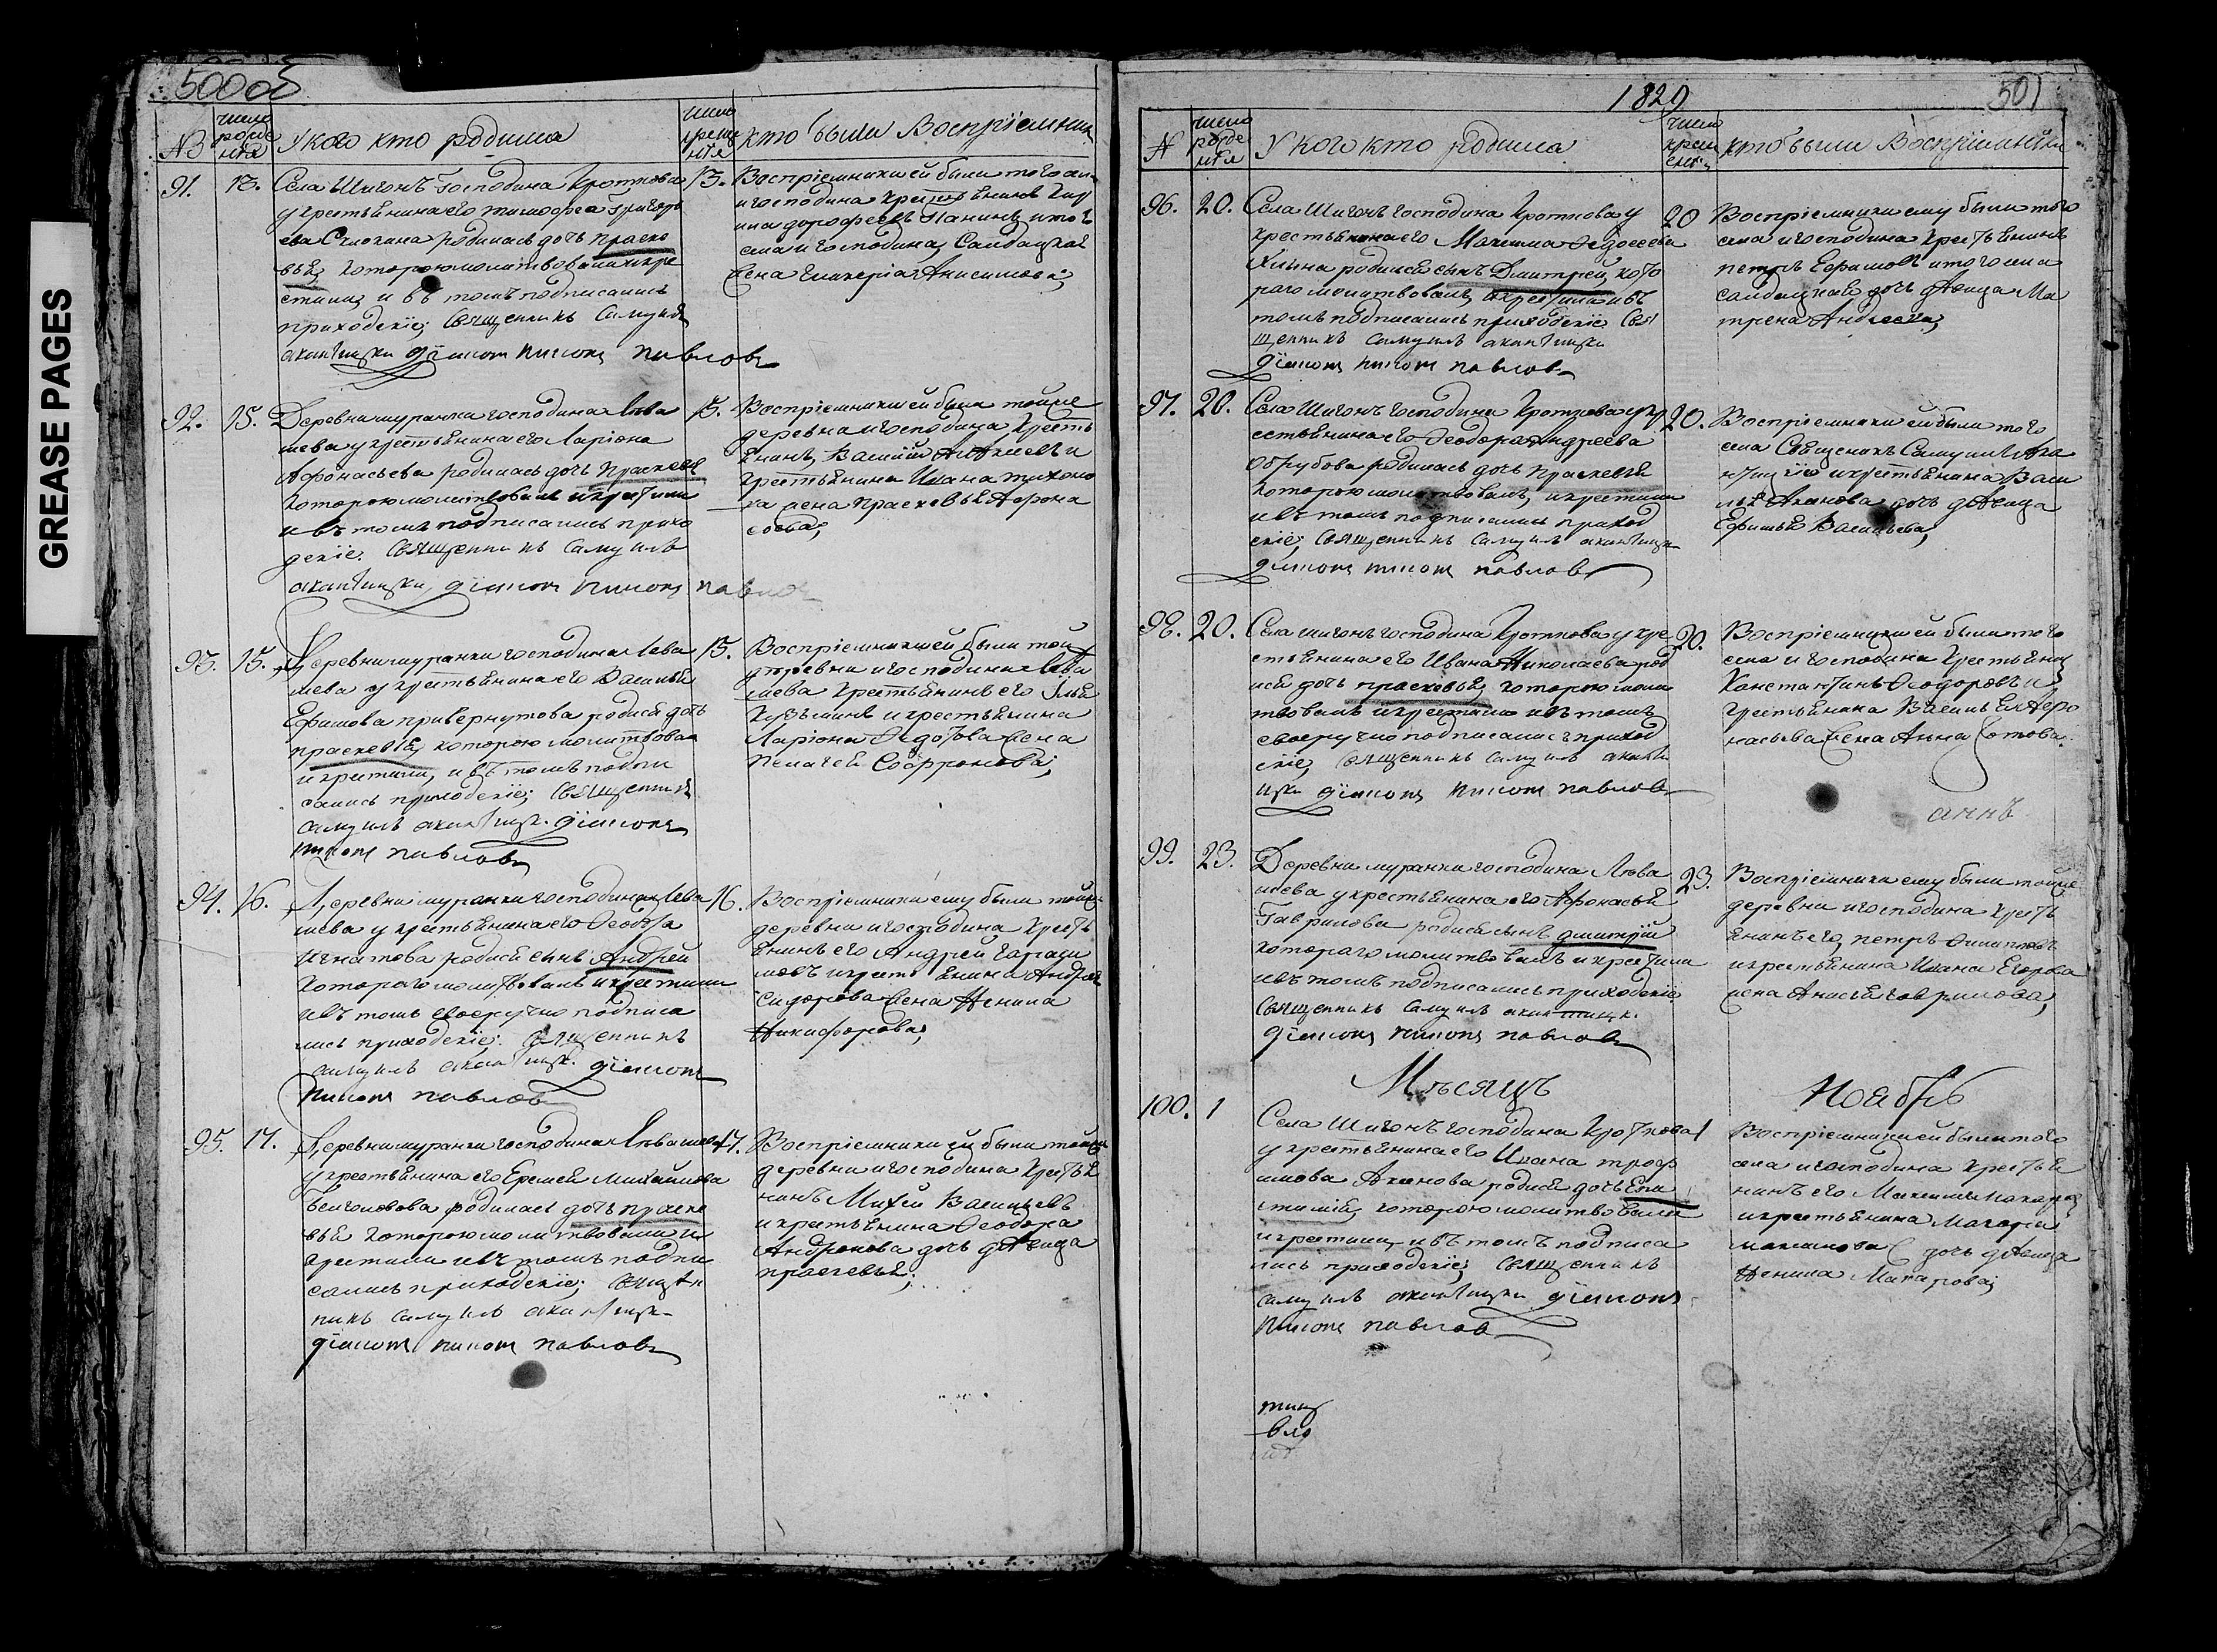 GREASE PAGES
500 об
№
число рожде нiя
У кого кто родился
число креще нiя
кто были Восприемники
91.
13.
Села Шигонъ Господина Кроткова
у крестьянина его тимофеа Григорь
ева родилась дочь праско
вья, которою молитвовали и кре
стили, и въ томъ подписались
приходскiе; священникъ Самуилъ
дiаконъ павловъ
13.
Восприемники ей были того села
и господина крестьянинъ Кир
ила дорофеевъ Панинъ и того
села и господина, Салдацкая
жена Гликерiа Анисимова;
92.
15.
Деревни муранки господина Лева
шева у крестьянина его Ларiона
Афонасьева родилась дочь праскевья
которою молитвовали и крестили
и въ томъ подписались прихо
дскiе. Священникъ Самуилъ
дiаконъ павловъ
15.
Восприемники ей были тойже
деревни и господина крестъ
янинъ, Василий Алексеевъ и
крестьянина Ивана тихоно
ва жена праскевья Афона
сьева;
93.
15.
Деревни муранки господина Лева
шева у крестьянина его Василья
Ефимова привернутова родися дочь
праскевья, которою молитвовали
и крестили, и въ томъ подпи
сались приходскiе; Священникъ
самуилъ дiаконъ
павловъ
15.
Восприемники ей были той
деревни и господина Лева
шева крестьянинъ его Илья
Кузьминъ и крестьянина
Ларiона Федотова жена
Пелагея Софронова;
94.
16.
Деревни муранки господина Лева
шева у крестьянина его Феодора
Игнатова родися сынъ Андрей
которого молитвовали и крестили
и въ томъ своеручно подписа
лись приходскiе. Священникъ
самуилъ дiаконъ
павловъ
16.
Восприемники ему были тойже
деревни и господина крестъ
янинъ его Андрей гараси
мовъ и крестьянина Андрея
Сидорова жена Ненила
Никифорова;
95.
17.
Деревни муранки господина Левашева
у крестьянина его Еремея Михайлова
родилась дочь праске
вья которою молитвовали и
крестили и въ томъ подпи
сались приходскiе; священ
никъ самуилъ
дiаконъ павловъ
17.
Восприемники ей были тойже
деревни и господина крестья
нинъ Михей Васильевъ
и крестьянина Феодора
Андронова дочь девица
праскевья;
1829
501
№
число рожде нiя
У кого кто родился
число крещ енiя
кто были Восприемники
96.
20.
Села Шигонъ господина Кроткова у
крестьянина его Максима Федосеева
Ильина родился сынъ Дмитрей, кото
раго молитвовали, и крестили и въ
томъ подписались приходскiе Свя
щенникъ самуилъ
дiаконъ павловъ
20
Восприемники ему были того
села и господина крестьянинъ
петръ Ефимовъ и того села
салдацкая дочь девица Ма
трена Андреева;
97.
20.
Села Шигонъ господина Кроткова у кр
естьянина его Феодора Андреева
Обрубова родилась дочь праскевья
которою молитвовали, и крестили
и въ томъ подписались приход
скiе; Священникъ самуилъ
дiаконъ павловъ
20.
Восприемники ей были того
села Священикъ Самуилъ
и крестьянина Васи
лья Аканова дочь девица
Ефимья Васильева;
98.
20.
Села шигонъ господина Кроткова у кре
стьянина его Ивана Николаева род
ися дочь праскевья, которою моли
твовали и крестили и въ томъ
своеручно подписались приход
скiе, священникъ самуилъ
дiаконъ павловъ
20.
Восприемники ей были того
села и господина крестьянинъ
Константинъ Феодоровъ и
крестьянина Василья Афо
насьева жена Анна Котова.
аннъ
99.
23.
Деревни муранки господина Лева
шева у крестьянина его Афонасья
Гаврилова родися сынъ дмитрiй
которого молитвовали и крестили
и въ томъ подписались приходскiе
Священникъ самуилъ
дiаконъ павловъ
23.
Восприемники ему были тойже
деревни и господина крестъ
янинъ его, петръ Филиповъ
и крестьянина Ивана Егорова
жена Анисья гаврилова;
Мѣсяцъ
Ноябрь
100.
1
Села Шигонъ господина Кроткова
у крестьянина его Ивана троф
имова Аканова родися дочь Епи
стимiя, которою молитвовали
и крестили, и въ томъ подписа
лись приходскiе; Священникъ
самуилъ дiаконъ
павловъ
1
Восприемники ей были того
села и господина крестья
нинъ его Максимъ Макаровъ
и крестьянина Макара
максимова дочь девица
Ненила Макарова;